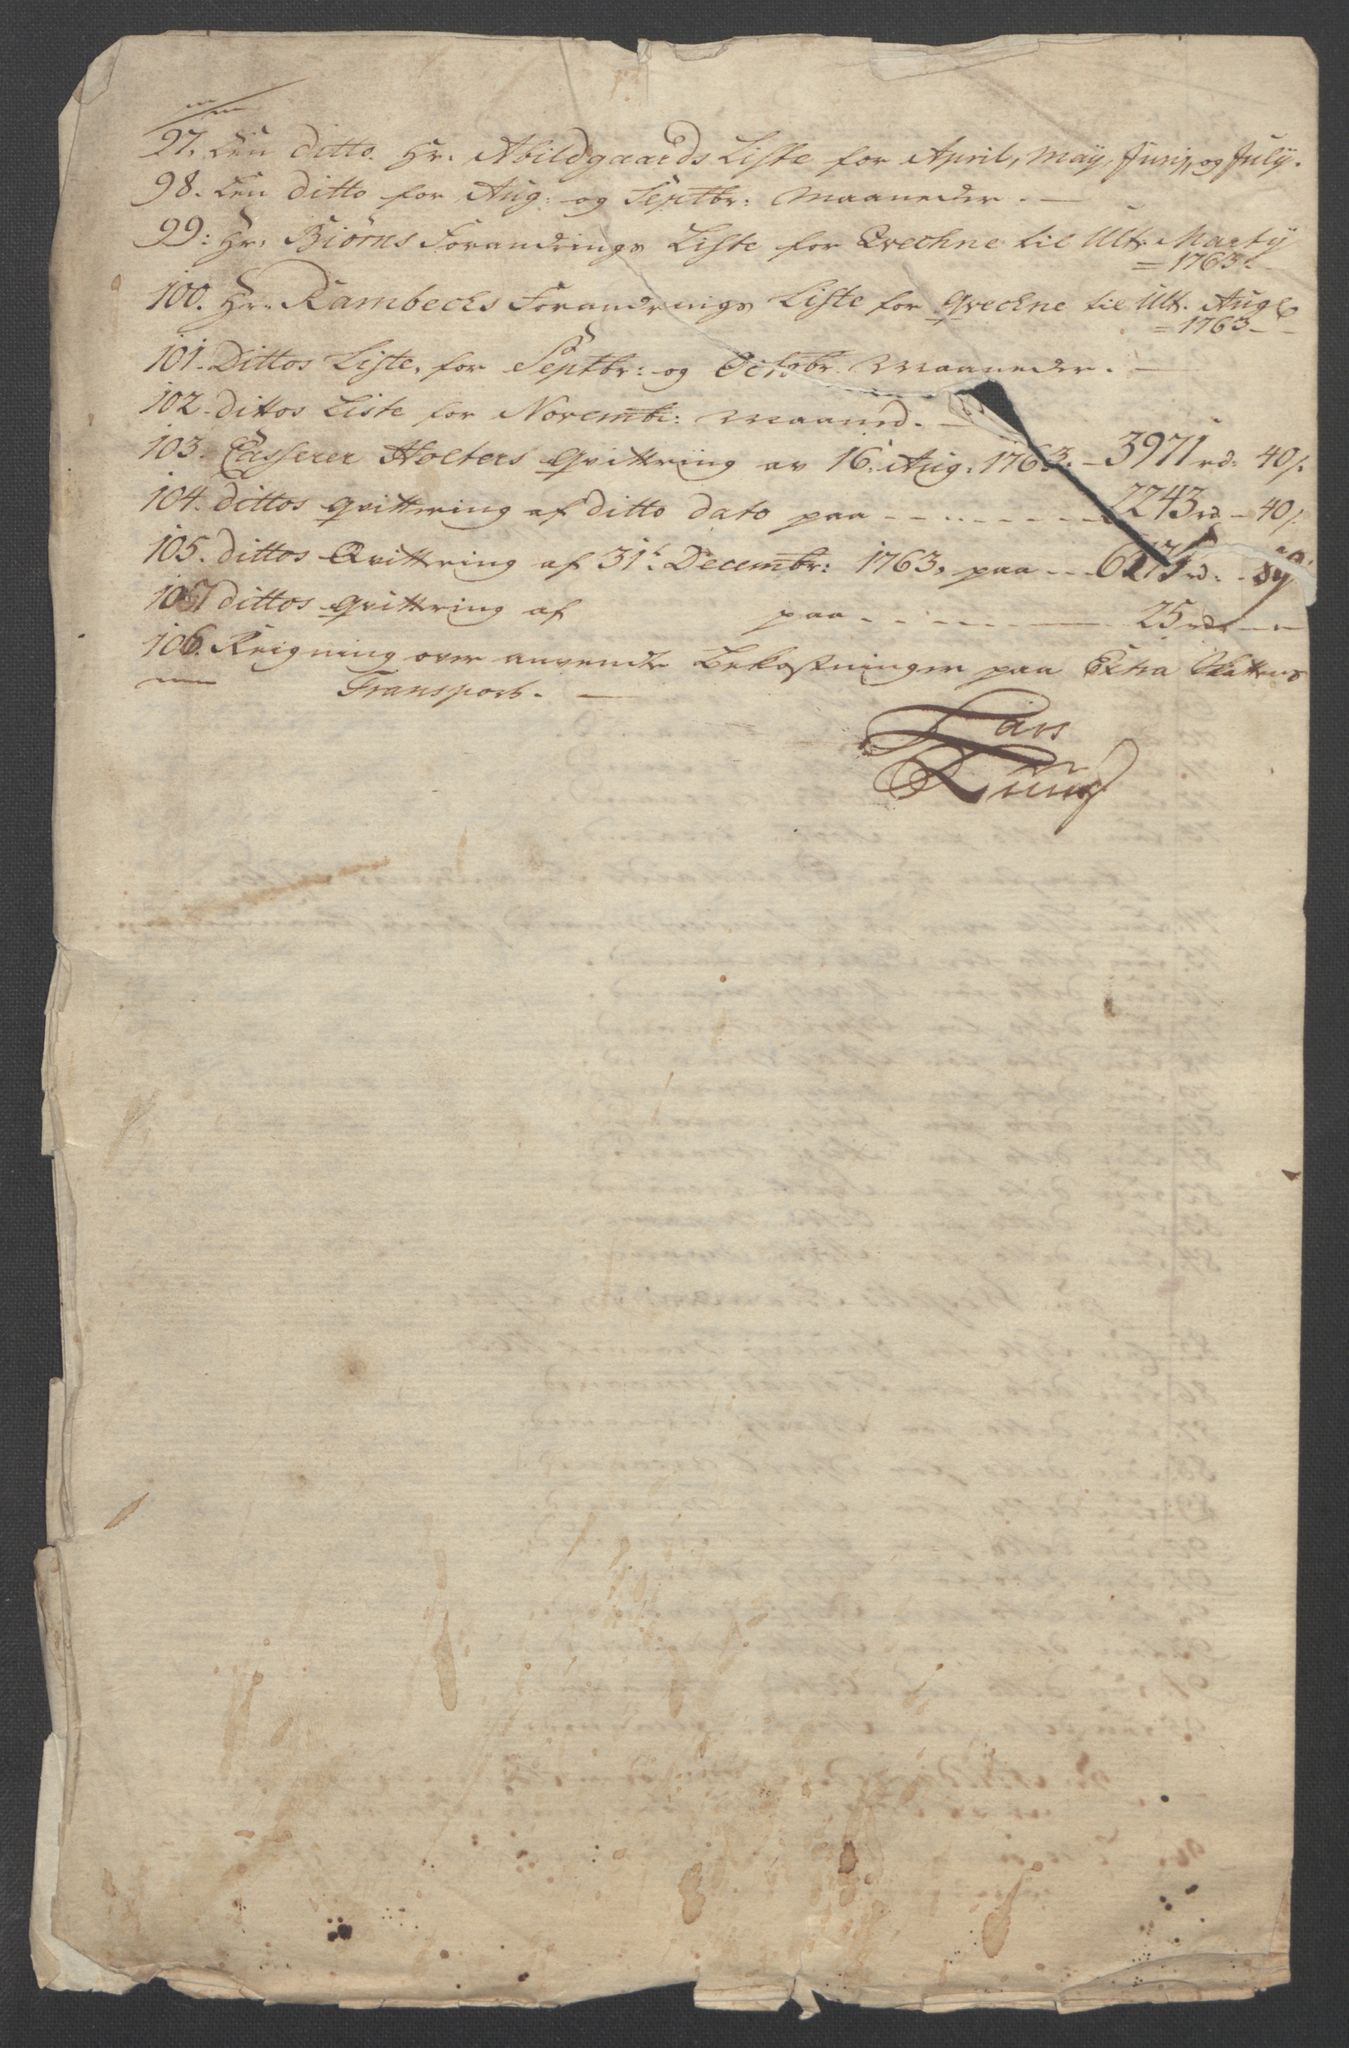 97. Een ditto Hr. Abildgaards Liste for April, May, Junij, og July.
98. Een ditto for Aug: og Septbr: Maaneder. —
99: Hr. Biørns Forandrings Liste for Qvechne til Ult. Martij
= 1763. —
100. Hr. Rambecks Forandrings Liste for Qvechne til Ult. Aug
= 1763 —
101. Dittos Liste, for Septbr: og Octobr. Maaneder. —
102. dittos Liste for Novembr: Maaned. —
103. Casserer Holters Qvittring av 16. Aug. 1763. — 3971 rd. 40 s.
104. dittos Qvittring af ditto dato paa — 2243 rd — 40 s.
105. dittos Qvittring af 31t. Decembr: 1763, paa — rd.
107 dittos Qvittring af paa — 25 rd —
106. Reigning over anvendte Bekostninger paa Extra Skattens
Transport. —
Lars